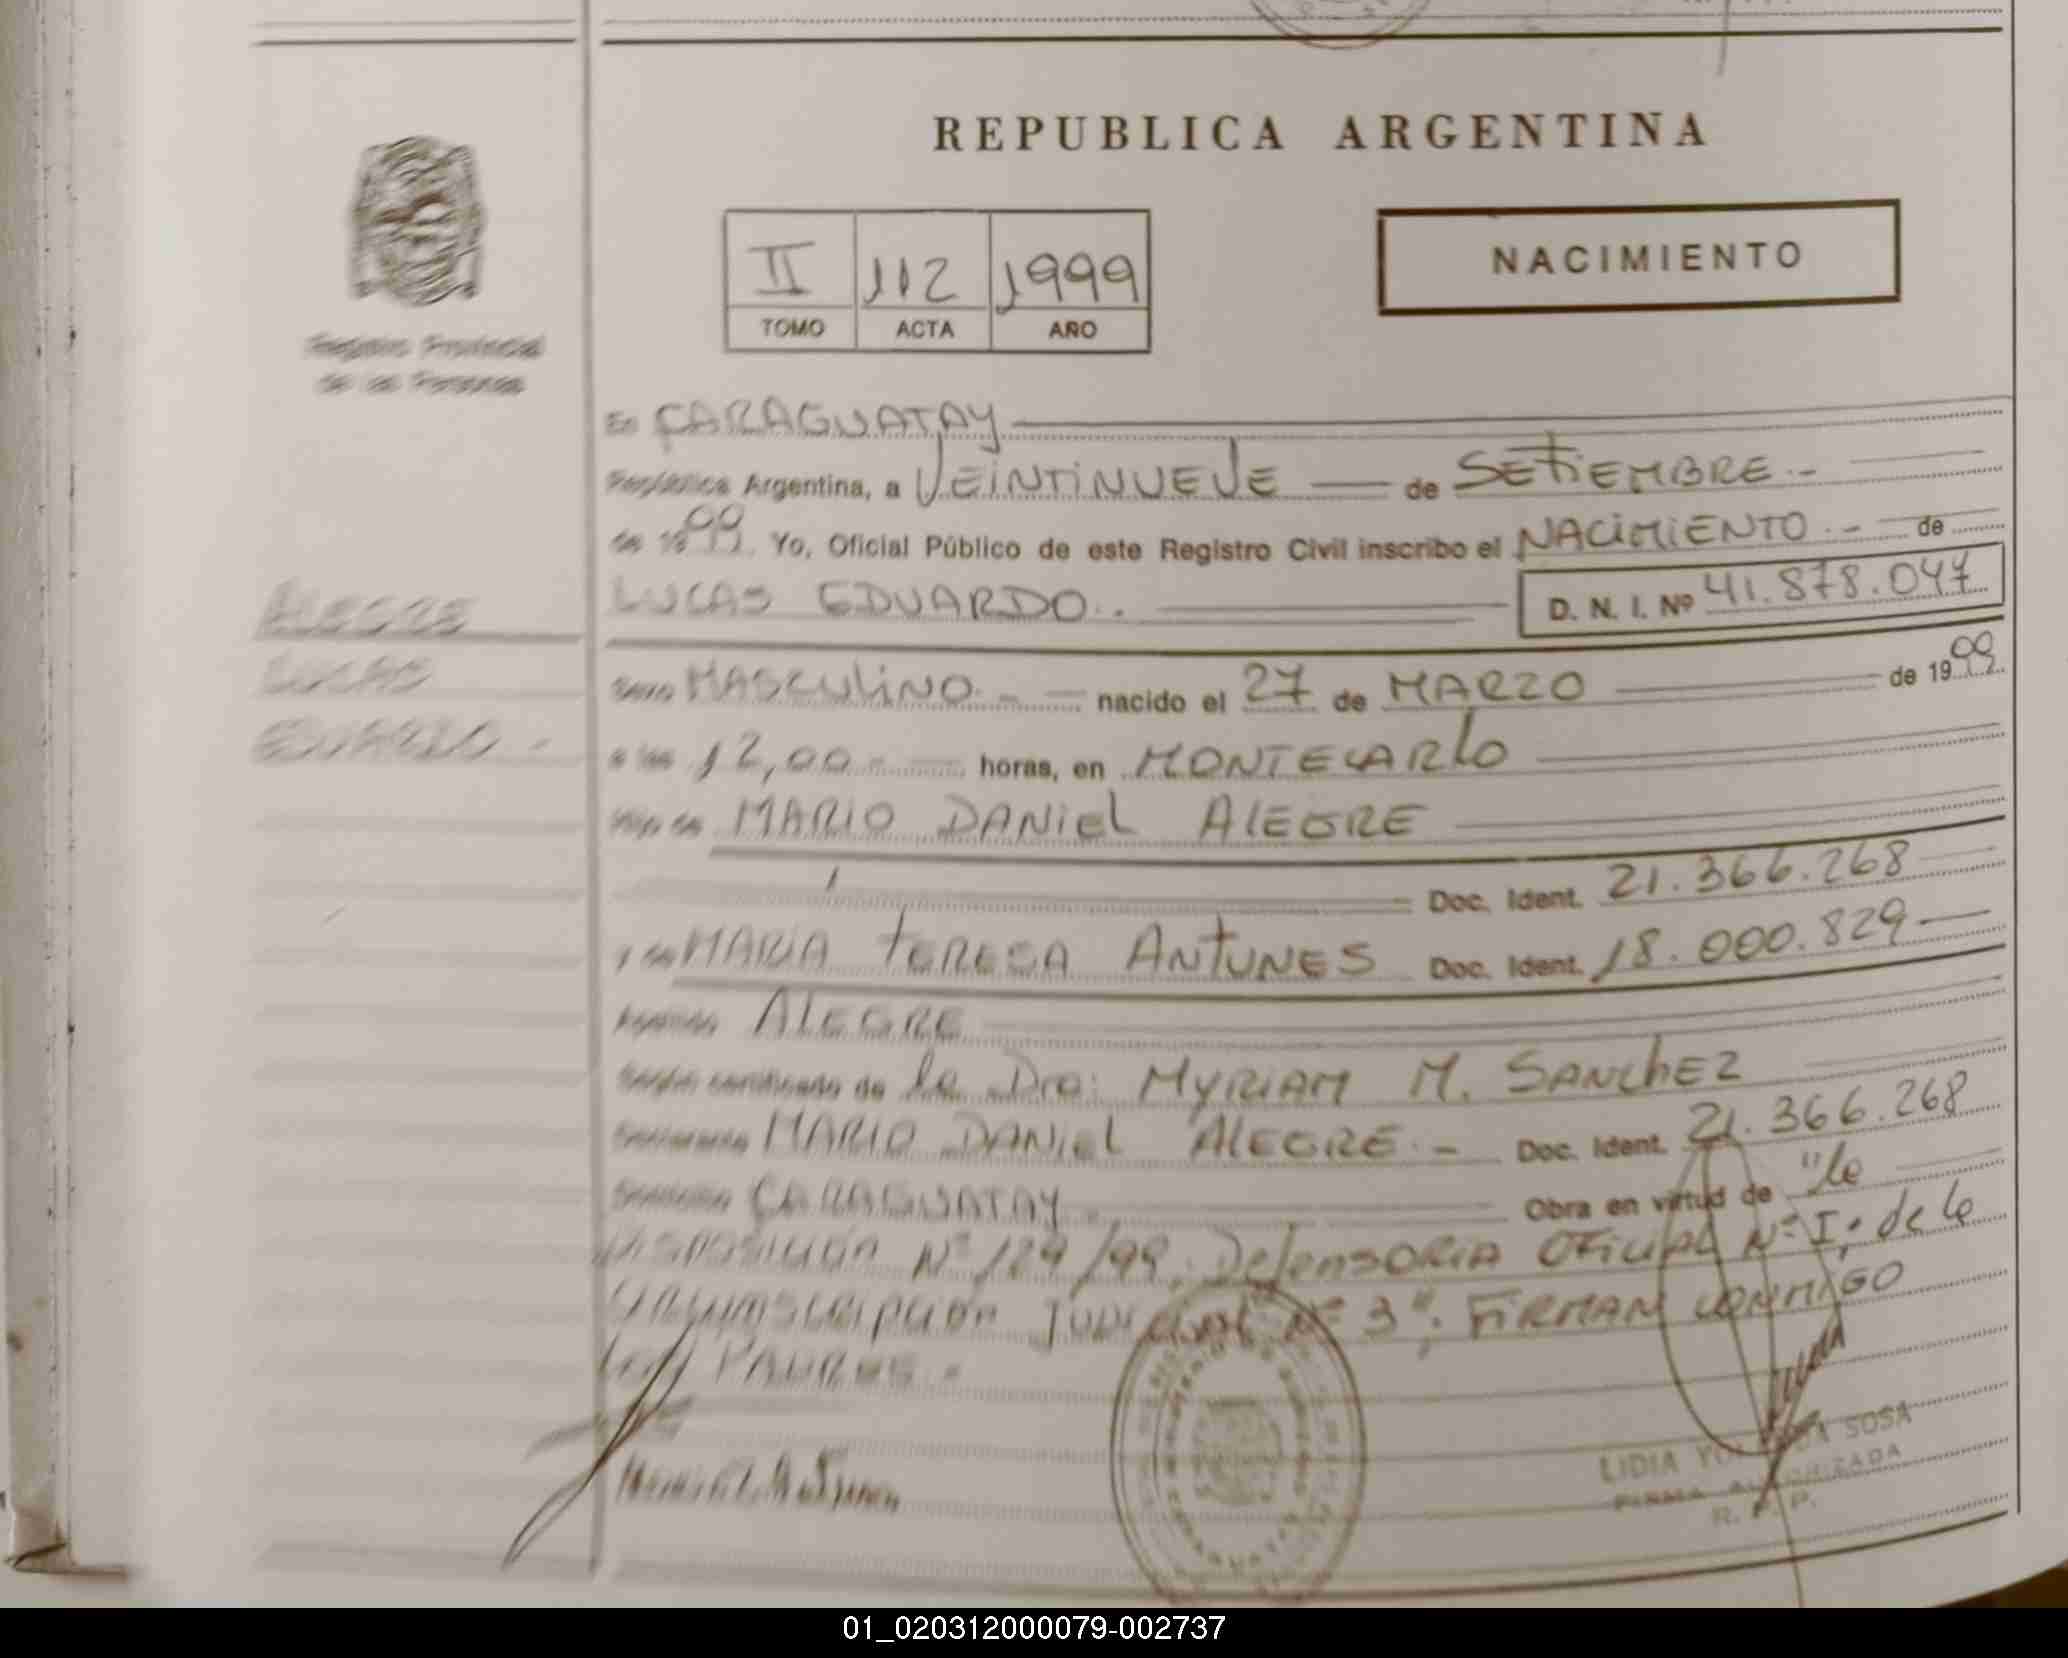 REPUBLICA ARGENTINA
NACIMIENTO
II 112 1999
TOMO ACTA AÑO
Registro Provincial
de las Personas
En CARAGUATAY
República Argentina, a VEINTINUEVE de SETIEMBRE.-
de 1999 Yo, Oficial Público de este Registro Civil inscribo el NACIMIENTO.- de
LUCAS EDUARDO.- D. N. I. Nº 41.878.047
ALEGRE
LUCAS
EDUARDO.-
Sexo MASCULINO.- nacido el 27 de MARZO de 1999
a las 12,00 horas, en MONTECARLO
Hijo de MARIO DANIEL ALEGRE
Doc. Ident. 21.366.268
y de MARIA TERESA ANTUNES Doc. Ident. 18.000.829
Apellido ALEGRE
Según certificado de la Dra: MYRIAM M. SANCHEZ
Declarante MARIO DANIEL ALEGRE.- Doc. Ident. 21.366.268
Domicilio CARAGUATAY Obra en virtud de "la
DISPOSICIÓN Nº 129/99, DefensORIA OFICIAL Nº I, de la
CIRCUNSCRIPCIÓN JUDICIAL Nº 3"; FIRMAN CONMIGO
LOS PADRES.-
LIDIA SOSA
FIRMA AUTORIZADA
R. P. P.
01_020312000079-002737